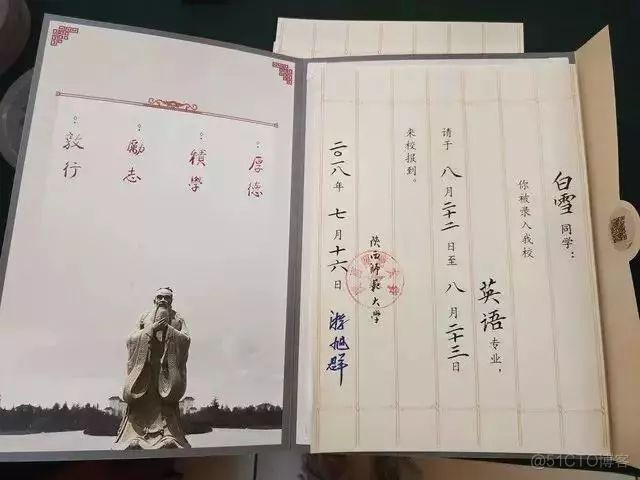 厚德
積學
勵志
敦行
白雪同学：
你被录入我校
英语专业，
请于八月二十二日至八月二十三日
来校报到。
陕西师範大學
二〇一八年七月十六日
游旭群
@51CTO博客